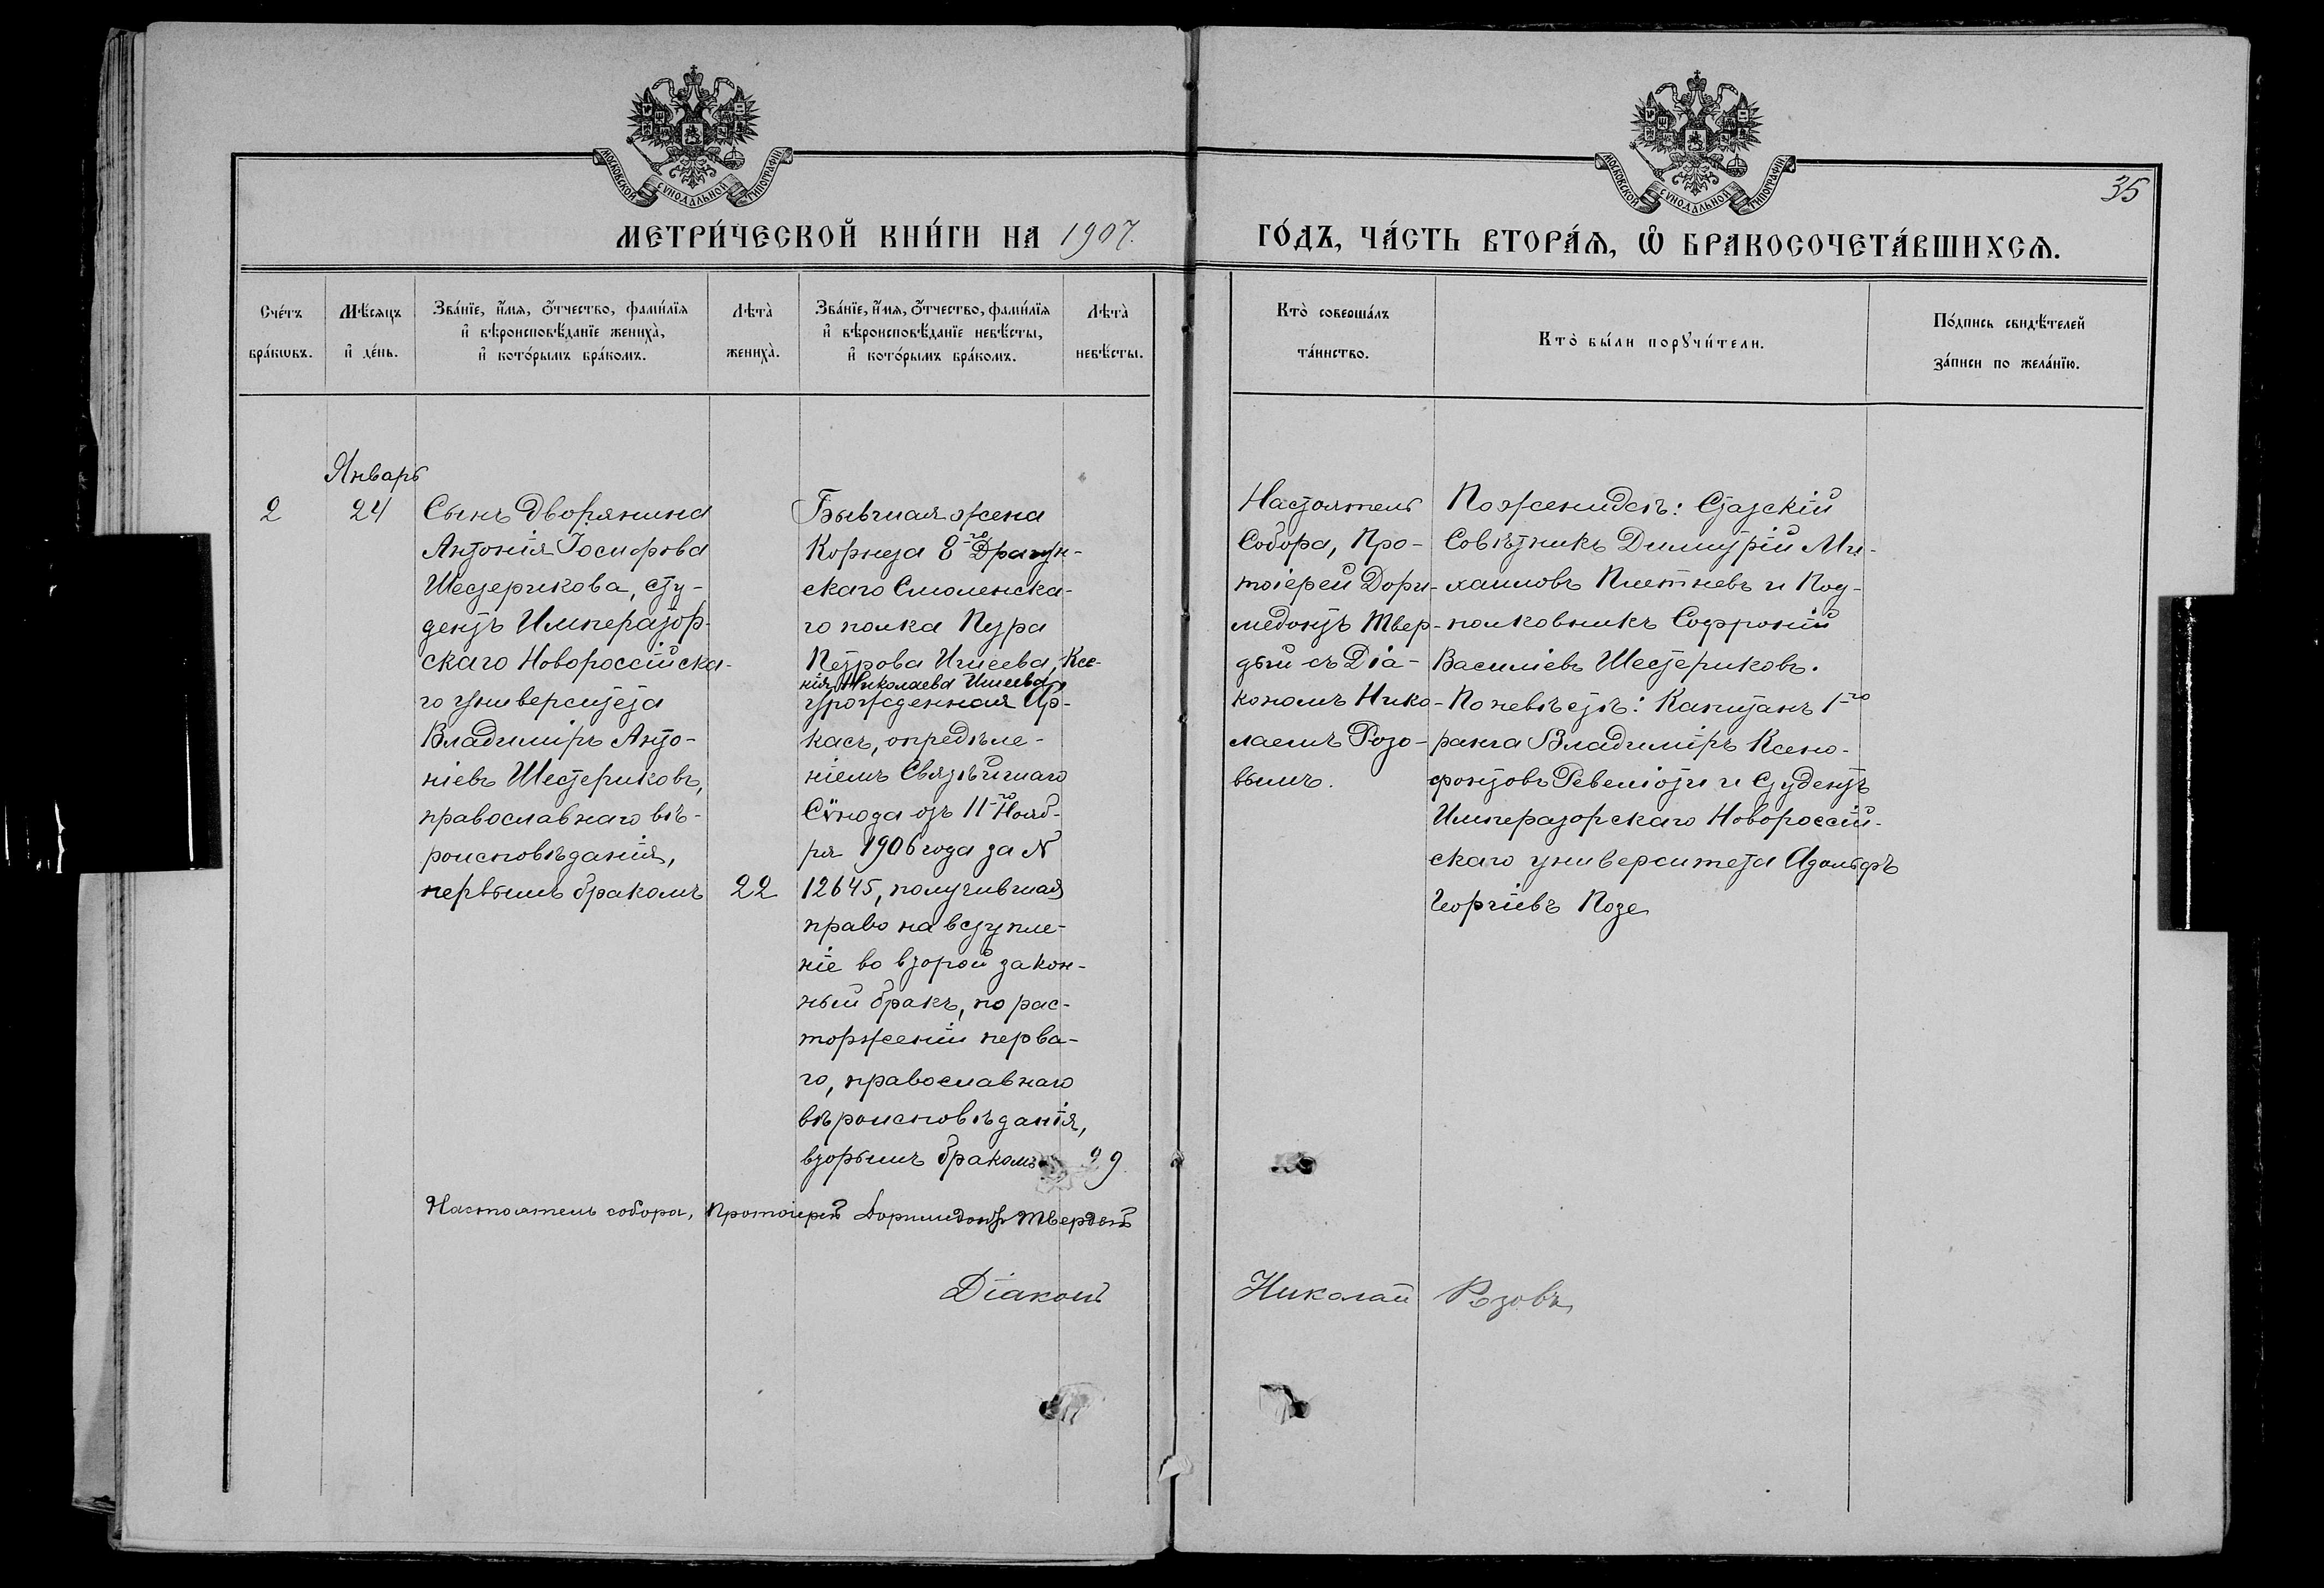 МОСКОВСКОЙ СѴНОДАЛЬНОЙ ТИПОГРАФІИ
МОСКОВСКОЙ СѴНОДАЛЬНОЙ ТИПОГРАФІИ
35
МЕТРИ́ЧЕСКОЙ КНИ́ГИ НА 1907.
ГО́ДЪ, ЧА́СТЬ ВТОРА́Ѧ, Ѡ҆ БРАКОСОЧЕТА́ВШИХСѦ.
Сче́тъ
бра́кѡвъ.
Мѣ́сяцъ
и҆ де́нь.
Зва́нїе, и҆́мя, ѻ҆́тчество, фами́лїя
и҆ вѣроисповѣ́данїе жениха̀,
и҆ кото́рымъ бра́комъ.
Лѣта̀
жениха̀.
Зва́нїе, и҆́мя, ѻ҆́тчество, фами́лїя
и҆ вѣроисповѣ́данїе невѣ́сты,
и҆ кото́рымъ бра́комъ.
Лѣта̀
невѣ́сты.
Кто̀ соверша́лъ
та́инство.
Кто̀ бы́ли порꙋчи́тели.
По́дпись свидѣ́телей
за́писи по жела́нїю.
Январь
2
24
Сынъ Дворянина
Антонія Іосифова
Шестерикова, сту-
дентъ Император-
скаго Новороссійска-
го университета
Владиміръ Анто-
ніевъ Шестериковъ,
православнаго вѣ-
роисповѣданія,
первымъ бракомъ
22
Бывшая жена
Корнета 8го Драгун-
скаго Смоленска-
го полка Петра
Петрова Ишеева, Ксе-
нія Николаева Ишеева,
урожденная Ар-
касъ, опредѣле-
ніемъ Святѣйшаго
Сѵнода отъ 11го Нояб-
ря 1906 года за N
12645, получившая
право на вступле-
ніе во второй закон-
ный бракъ, по рас-
торженіи перва-
го, православнаго
вѣроисповѣданія,
вторымъ бракомъ
29
Настоятель
Собора, Про-
тоіерей Дори-
медонтъ Твер-
дый съ Діа-
кономъ Нико-
лаемъ Розо-
вымъ.
По женихѣ: Статскій
Совѣтникъ Димитрій Ми-
хаиловъ Плетневъ и Под-
полковникъ Софроній
Василіевъ Шестериковъ.
По невѣстѣ: Капитанъ 1го
ранга Владиміръ Ксено-
фонтовъ Ревеліоти и Студентъ
Императорскаго Новороссій-
скаго университета Адольфъ
Георгіевъ Позе
Настоятель собора, Протоіерей Доримедонтъ Твердый
Діаконъ Николай Розовъ